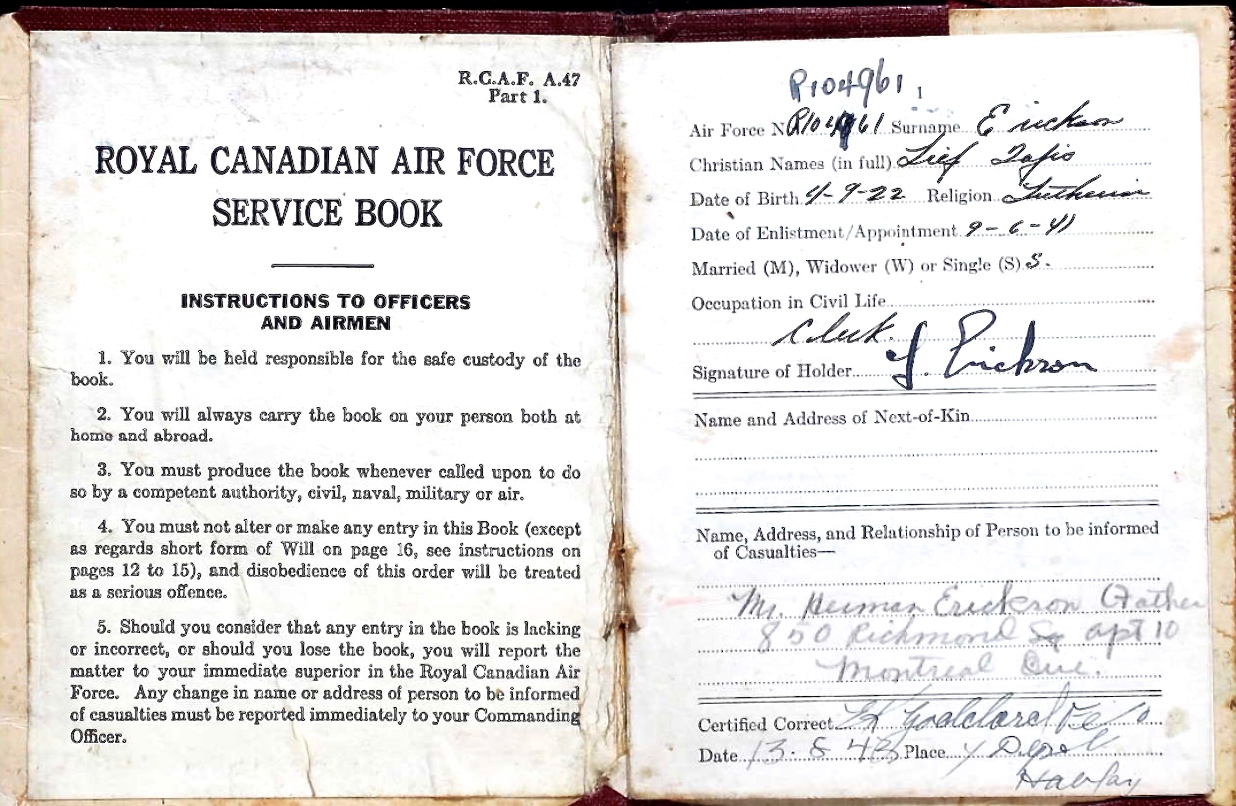 R.C.A.F. A.47
Part 1.
ROYAL CANADIAN AIR FORCE
SERVICE BOOK
INSTRUCTIONS TO OFFICERS
AND AIRMEN
1. You will be held responsible for the safe custody of the
book.
2. You will always carry the book on your person both at
home and abroad.
3. You must produce the book whenever called upon to do
so by a competent authority, civil, naval, military or air.
4. You must not alter or make any entry in this Book (except
as regards short form of Will on page 16, see instructions on
pages 12 to 15), and disobedience of this order will be treated
as a serious offence.
5. Should you consider that any entry in the book is lacking
or incorrect, or should you lose the book, you will report the
matter to your immediate superior in the Royal Canadian Air
Force. Any change in name or address of person to be informed
of casualties must be reported immediately to your Commanding
Officer.
R104961
1
Air Force No R104961 Surname Erickson
Christian Names (in full) Lief
Date of Birth 4-9-22 Religion Lutheran
Date of Enlistment/Appointment 9-6-41
Married (M), Widower (W) or Single (S) S.
Occupation in Civil Life
Clerk.
Signature of Holder L. Erickson
Name and Address of Next-of-Kin
Name, Address, and Relationship of Person to be informed
of Casualties—
Mr. Herman Erickson (Father
850 Richmond Sq apt 10
Montreal Que.
Certified Correct Goddard F/O
Date 13.8.43 Place Y Depot
Halifax